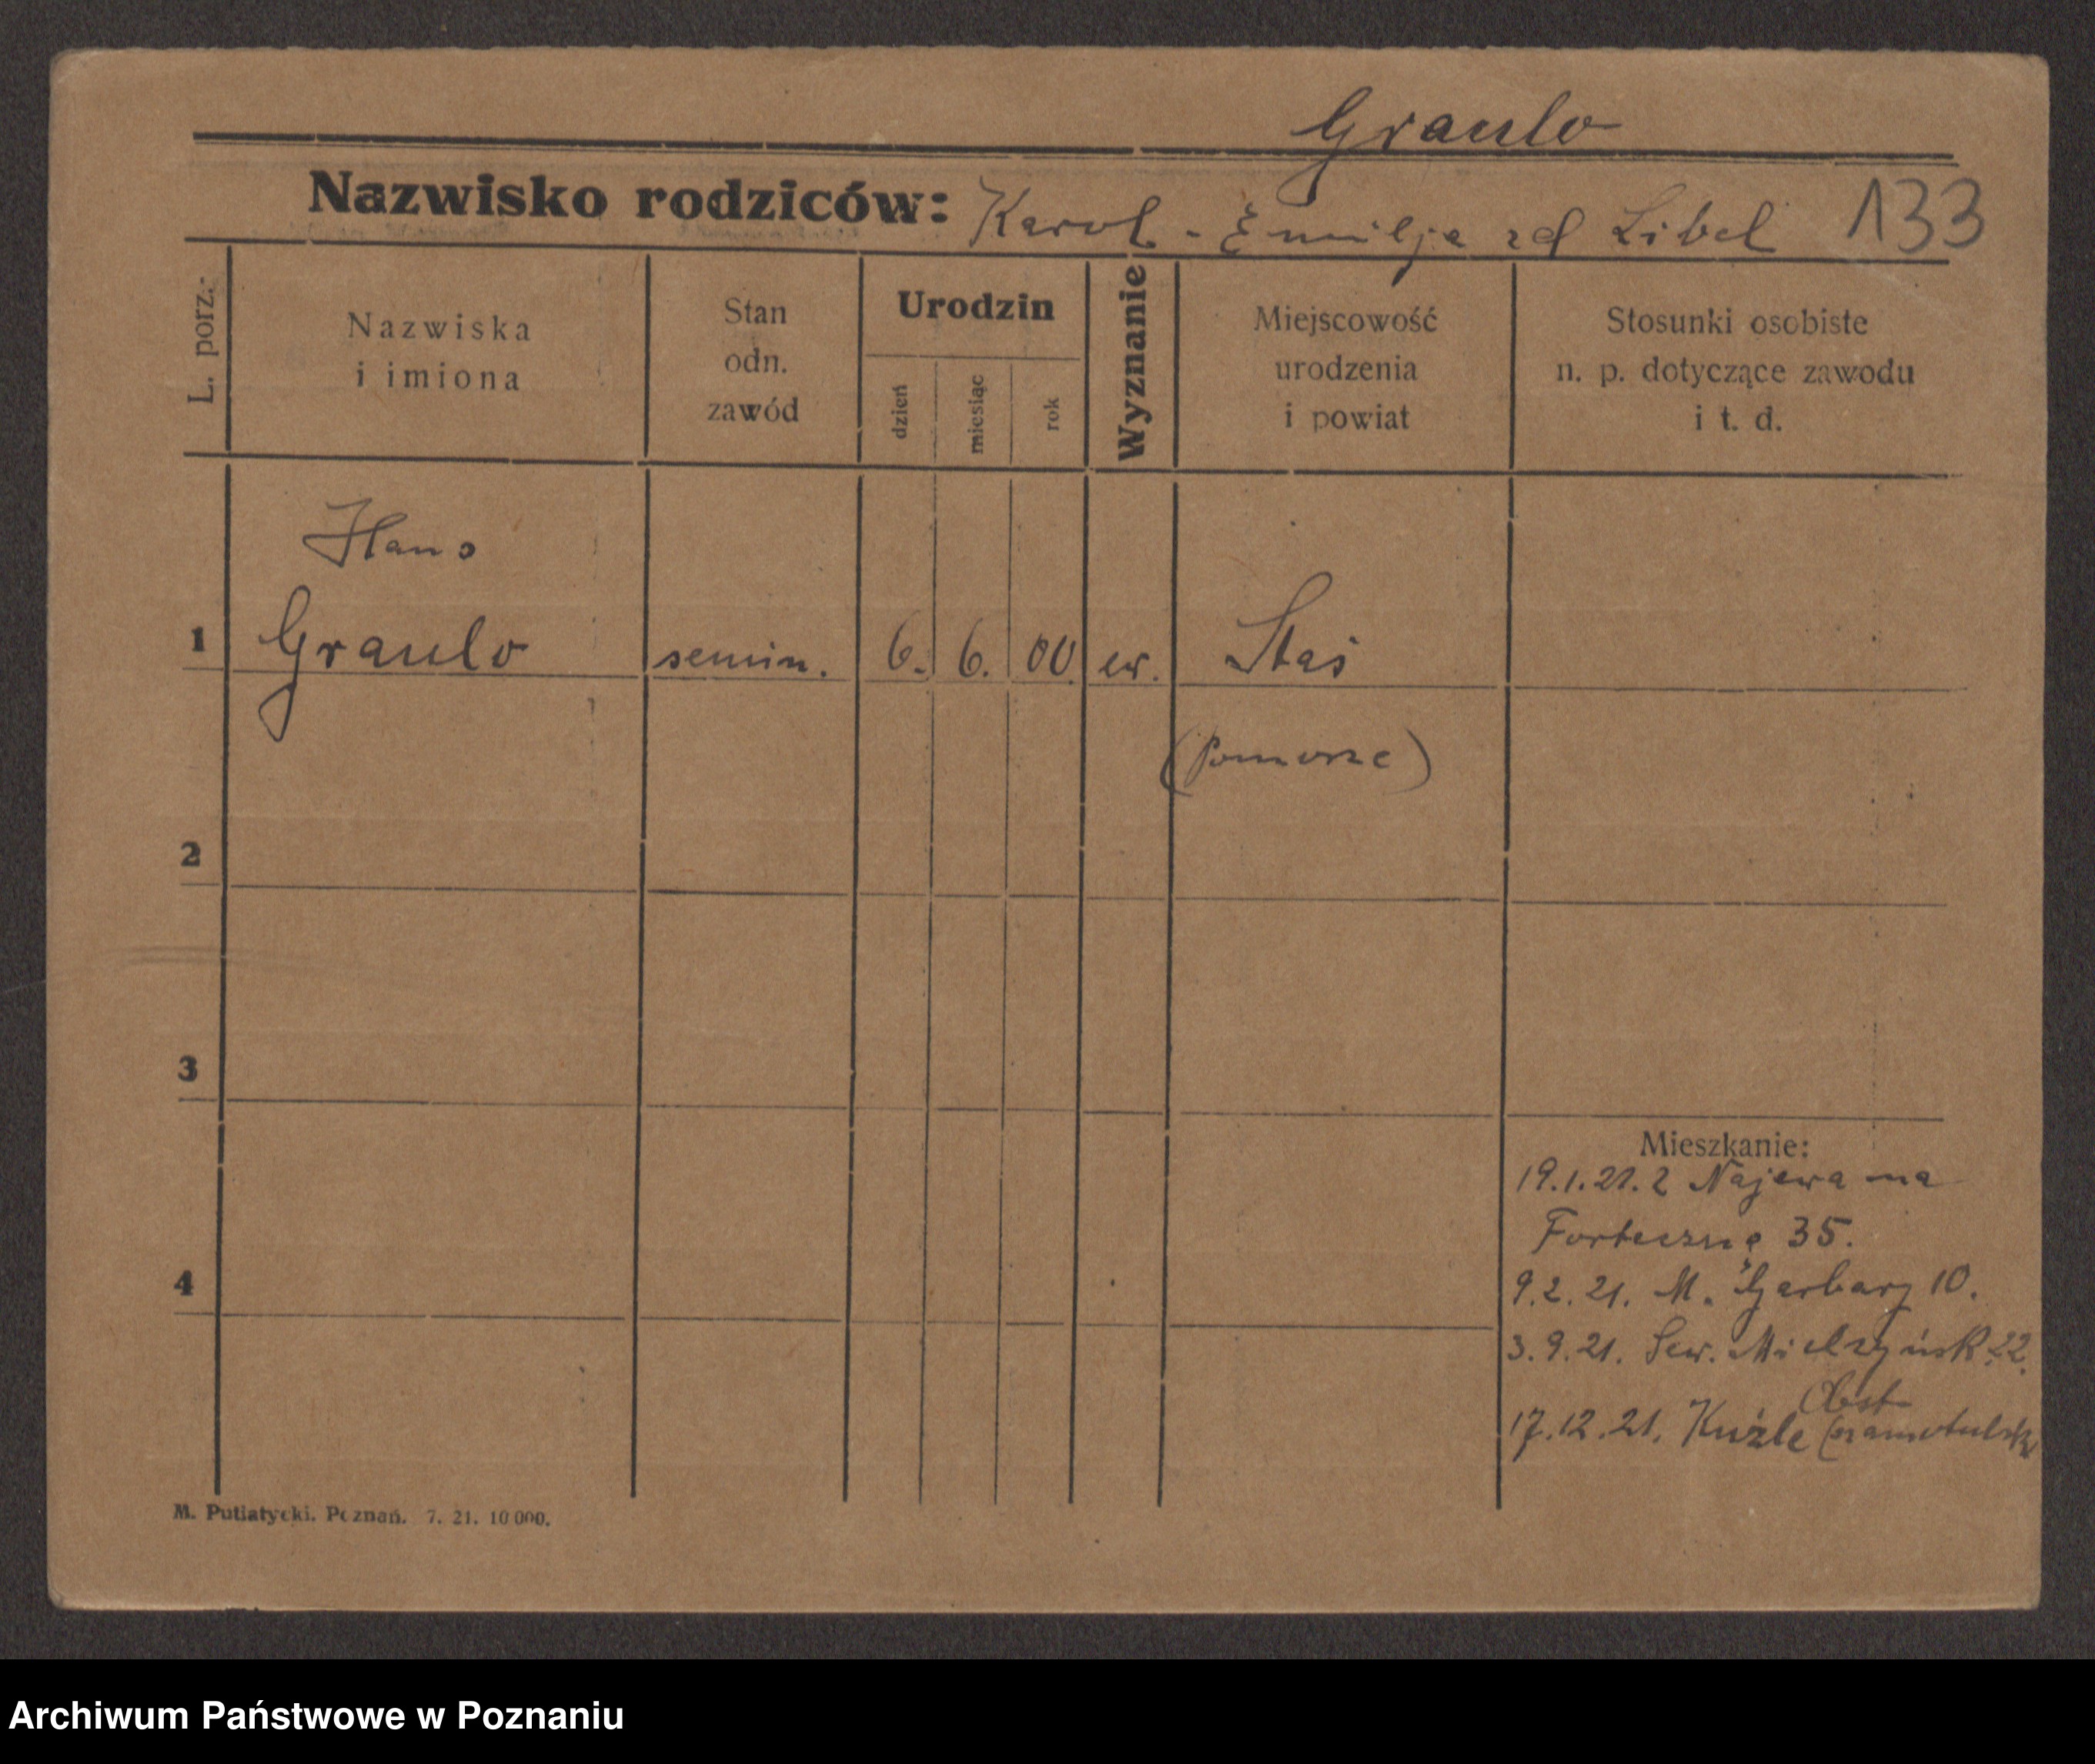 Graulo
Nazwisko rodziców: Karol - Emilja zd Libel 133
L. porz.
Nazwiska
i imiona
Stan
odn.
zawód
Urodzin
dzień
miesiąc
rok
Wyznanie
Miejscowość
urodzenia
i powiat
Stosunki osobiste
n. p. dotyczące zawodu
i t. d.
Hans
1 Graulo semin. 6. 6. 00. ew. Staś
(Pomorze)
2
3
4
Mieszkanie:
19.1.21. z Najewa na
Forteczną 35.
9.2.21. M. Garbary 10.
3.9.21. Sew. Mielżyńsk. 22.
17.12.21. Kuźle
M. Putiatycki. Poznań. 7. 21. 10 000.
Archiwum Państwowe w Poznaniu